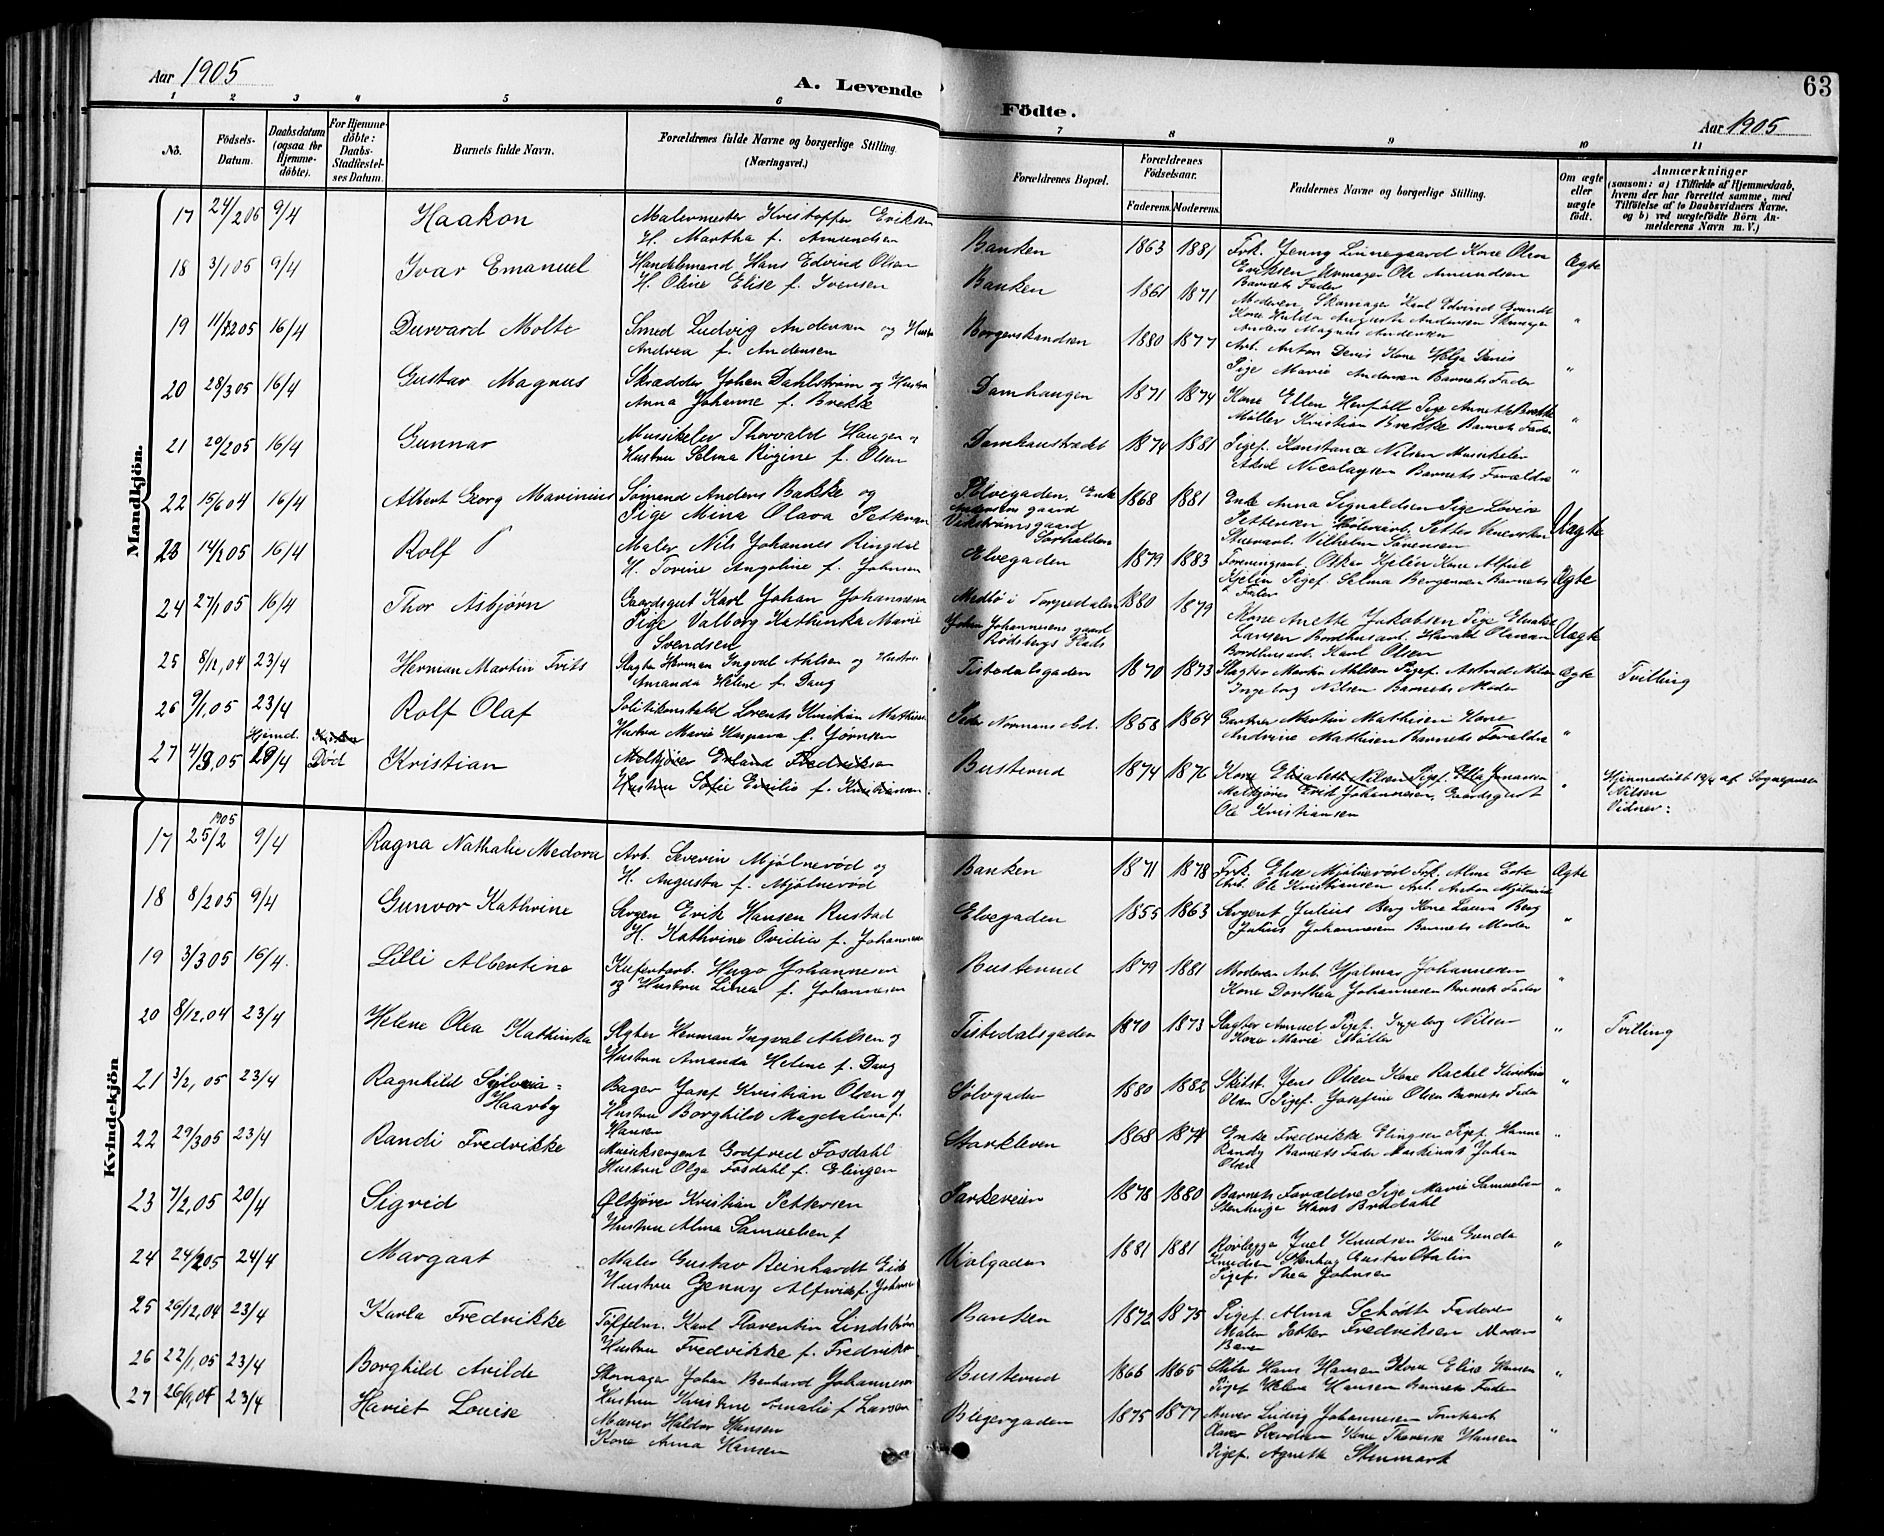 Aar 1905
A. Levende Födte.
63
Aar 1905
1 2 3 4 5 6 7 8 9 10 11
No.
Födsels-Datum.
Daabsdatum (ogsaa for Hjemmedöbte).
For Hjemmedöbte: Daabs-Stadfæstelses Datum.
Barnets fulde Navn.
Forældrenes fulde Navne og borgerlige Stilling (Næringsvei.)
Forældrenes Bopæl.
Forældrenes Födselsaar.
Faderens. Moderens.
Faddernes Navne og borgerlige Stilling.
Om ægte eller uægte födt.
Anmærkninger
(saasom: a) i Tilfælde af Hjemmedaab,
hvem der har forrettet samme, med
Tilföielse af to Daabsvidners Navne.
og b) ved uægtefödte Börn An-
melderens Navn m. V.)
Mandkjön.
17 24/2 05 9/4 Haakon Malermester Kristoffer Eriksen
H. Martha f. Amundsen
Banken 1863 1881 Frk. Jenny Linnegaard Kone Olea
Eriksen Ole Amundsen
Barnets Fader
Ægte
18 3/1 05 9/4 Ivar Emanuel Handelsmand Hans Edvind Olsen
H. Oline Elise f. Iversen
Banken 1861 1871 Moderen Skomager Karl Edvind Brandt
Kone Hulda Auguste Andersen Skomager
Anders Magnus Andersen
"
19 05 16/4 Durvard Molte Smed Ludvig Andersen og Hustru
Andrea f. Andersen
Borgerskandsen 1880 1877 Arb. Anton Denis Kone Helga Denis
Pige Marie Andersen Barnets Fader
"
20 28/3 05 16/4 Gustav Magnus Skrædder Johan Dahlstrøm og Hustru
Anna Johanne f. Brekke
Damhaugen 1871 1874 Kone Ellen Pige Anette Brekke
Møller Kristian Brekke Barnets Fader
"
21 29/2 05 16/4 Gunnar Musikeler Thorvald Haugen og
Hustru Selma Regine f. Olsen
Damhaustrædet 1874 1881 Pigef. Konstance Nilsen Musikelev
Aksel Nicolaysen Barnets Forældre
"
22 15/6 04 16/4 Albert Georg Marinius Sømand Anders Bakke og
Pige Mina Olava Pettersen
Ølvegaden. Enke
Andersens gaard
Vikstrømsgaard
Sørhalden
1868 1881 Enke Anna Signaldsen Pige Lovise
Pettersen Petter
Stuerarb. Vilhelm Sørensen
Uægte
23 14/2 05 16/4 Rolf Maler Nils Johannes Ringdal
H. Torine Angoline f. Johnsen
Elvegaden 1879 1883 Foreningsarb. Oskar Hjelin Kone Alfild
Hjelin Pigef. Selma Bergersen Barnets
Fader
Ægte
24 27/1 05 16/4 Thor Asbjørn Gaardsgut Karl Johan Johannesen
Pige Valborg Kathinka Marie
Svendsen
Medbø i Torpedalen
Johan Johannesens gaard
Rødsbergs Plads
1880 1879 Kone Anette Jakobsen Pige
Larsen Bordhusarb. Harald Olavsen
Bordhusarb. Karl Olsen
Uægte
25 8/12 04 23/4 Herman Martin Frits Slagter Herman Ingval Ahlsen og Hustru
Amanda Helene f. Daug
Tistedalsgaden 1870 1873 Slagter Martin Ahlsen Pigef. Astrid Nilsen
Ingeborg Nilsen Barnets Moder
Ægte Tvilling
26 9/1 05 23/4 Rolf Olaf Politikonstabel Lorents Kristian Mathisen
Hustru Marie Kaspara f. Jørnsen
Peder Normans Gd. 1858 1864 Gartner Martin Mathisen Kone
Andrine Mathisen Barnets Forældre
"
27 4/3 05 Hjemd. 19/4 Død Kristian Melkjører Erland Fredriksen
Hustru Sofie Emilie f. Kristiansen
Busterud 1874 1876 Kone Elisabeth Nilsen Pigef. Ella Jonassen
Melkjører Erik Johannesen, Gaardsgut
Ole Kristiansen
" Hjemmedøbt 19/4 af Sognepresten
Nilsen
Vidner:
Kvindekjön
1905
17 25/2 9/4 Ragna Nathalie Medora Arb. Severin Mjølnerød og
H. Augusta f. Mjølnerød
Banken 1871 1878 Frk. Elise Mjølnerød Frk. Alma Lote
Arb. Ole Kristiansen Arb. Anton Mjølnerød
Ægte
18 8/2 05 9/4 Gunvor Kathrine Sergen Erik Hansen Rustad
H. Kathrine Ovidia f. Johannesen
Elvegaden 1855 1863 Sergent Julius Berg Kone Laura Berg
Julius Johannesen Barnets Moder
"
19 3/3 05 16/4 Lilli Albertine Hugo Johannesen
og Hustru Linea f. Johannesen
Busterud 1879 1881 Moderen Arb. Hjalmar Johannesen
Kone Dorthea Johannesen Barnets Fader
"
20 8/12 04 23/4 Helene Olea Kathinka Slagter Herman Ingval Ahlsen og
Hustru Amanda Helene f. Daug
Tistedalsgaden 1870 1873 Slagter Pigef. Ingeborg Nilsen
Kone Marie Møller
" Tvilling
21 3/2 05 23/4 Ragnhild Sylveia Haarby Bager Josef Kristian Olsen og
Hustru Borghild Magdalena f.
Hansen
Sølvgaden 1880 1882 Skibst. Jens Olsen Kone Rachel Kristine
Olsen Pigef. Josefine Olsen Barnets Fader
"
22 29/3 05 23/4 Randi Fredrikke Musiksergent Godtfred Fosdahl
Hustru Olga Fosdahl f. Elingsen
Starkleven 1868 1874 Enke Fredrikke Elingsen Pigef. Hanna
Randy Barnets Fader Johan
Olsen
"
23 7/2 05 20/4 Sigrid Ølkjører Kristian Pettersen
Hustru Alma Samuelsen f
1878 1880 Barnets Forældre Pige Marie Samuelsen
Stenhuge Hans Brødahl
"
24 24/2 05 24/4 Margaat Maler Gustav Reinhardt
Hustru Jenny Alfride f. Johnsen
Violgaden 1881 1881 Rørlegge Juel Knudsen Kone Gunda
Knudsen Stenhug Gustav
Pigef. Thea Johnsen
"
25 26/12 04 23/4 Karla Fredrikke Karl Florentin Lindstrøm
Hustru Fredrikke f. Fredriksen
Banken 1872 1875 Pigef. Alma Schødt Faderen
Maler Petter Fredriksen Moders
"
26 22/1 05 23/4 Borghild Avilde Skomager Johan Bernhard Johannesen
Hustru Kristine Amalie f Larsen
Busterud 1866 1865 Hans Hansen Kone Elise Hansen
Pigef Helene Hansen Barnets Fader
"
27 23/4 Hariet Louise Murer Haldor Hansen
Kone Anna Hansen
1875 1877 Murer Ludvig Johannesen
Kone Therese Hansen
Pigef. Agnethe Stenmark
"